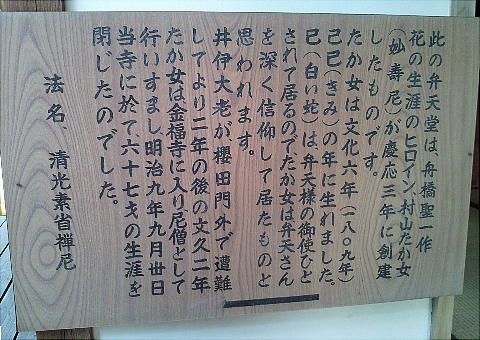 此の弁天堂は、舟橋聖一作
花の生涯のヒロイン、村山たか女
(妙壽尼)が慶応三年に創建
したものです。
たか女は文化六年(一八〇九年)
己巳(きみ)の年に生れました。
巳(白い蛇)は、弁天様の御使ひと
されて居るのでたか女は弁天さん
を深く信仰して居たものと
思われます。
井伊大老が櫻田門外で遭難
してより二年の後の文久二年
たか女は、金福寺に入り尼僧として
行いすまし、明治九年九月丗日
当寺に於て、六十七才の生涯を
閉じたのでした。
法名、清光素省禅尼